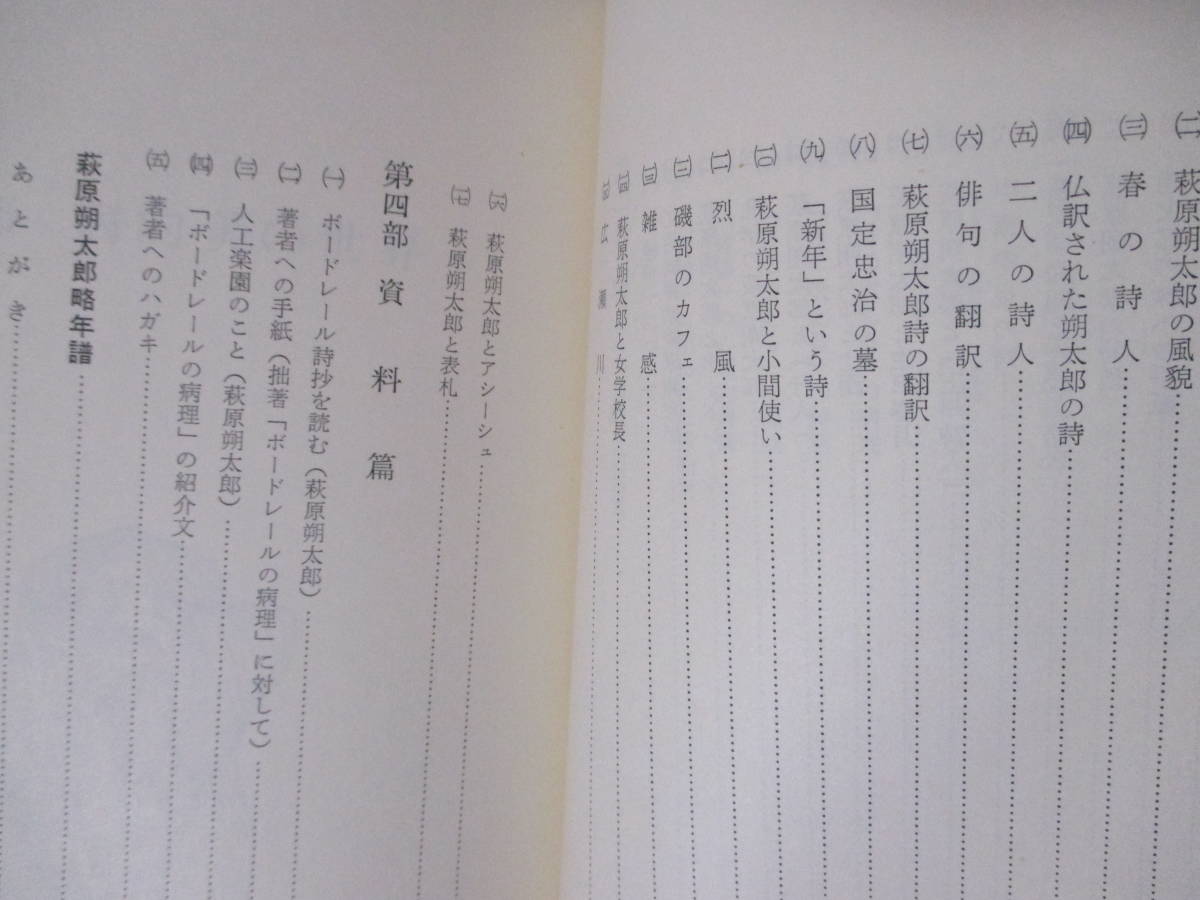 ㈡ 萩原朔太郎の風貌
㈢ 春の詩人……
㈣ 仏訳された朔太郎の詩……
㈤ 二人の詩人……
㈥ 俳句の翻訳……
㈦ 萩原朔太郎詩の翻訳……
㈧ 国定忠治の墓……
㈨ 「新年」という詩……
㈩ 萩原朔太郎と小間使い……
(二) 烈風……
(三) 磯部のカフェ……
(三) 雑感……
(四) 萩原朔太郎と女学校長……
広瀬川……
(六) 萩原朔太郎とアシーシュ……
(七) 萩原朔太郎と表札……
第四部 資料篇
㈠ ボードレール詩抄を読む(萩原朔太郎)……
㈡ 著者への手紙(拙著「ボードレールの病理」に対して)……
㈢ 人工楽園のこと(萩原朔太郎)……
㈣ 「ボードレールの病理」の紹介文……
㈤ 著者へのハガキ……
萩原朔太郎略年譜……
あとがき……